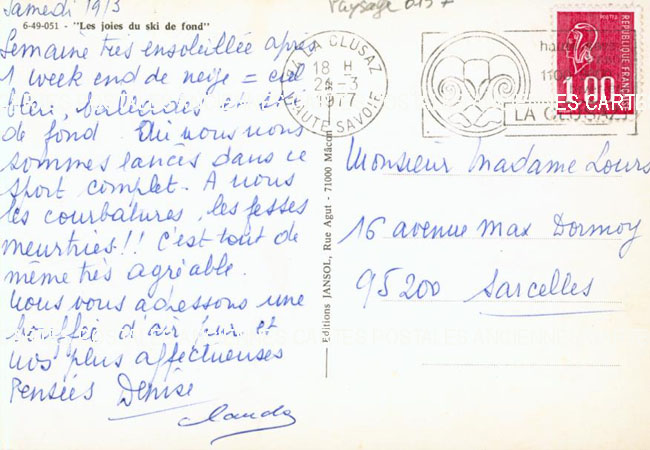 Samedi 19/3
Paysage
6-49-051 - "Les joies du ski de fond"
Semaine très ensoleillée après
1 week end de neige = ciel
bleu, ballades et ski
de fond. Oui nous nous
sommes lancés dans ce
sport complet. A nous
les courbatures, les fesses
meurtries!! C'est tout de
même très agréable.
Nous vous adressons une
bouffée d'air pur et
nos plus affectueuses
Pensées Denise
Claude
LA CLUSAZ
18 H
22-3
1977
HAUTE SAVOIE
LA CLUSAZ
POSTES
1,00
REPUBLIQUE FRANCAISE
Editions JANSOL, Rue Agut - 71000 Mâcon
Monsieur Madame Lours
16 avenue Max Dormoy
95200 Sarcelles
CARTES POSTALES ANCIENNES